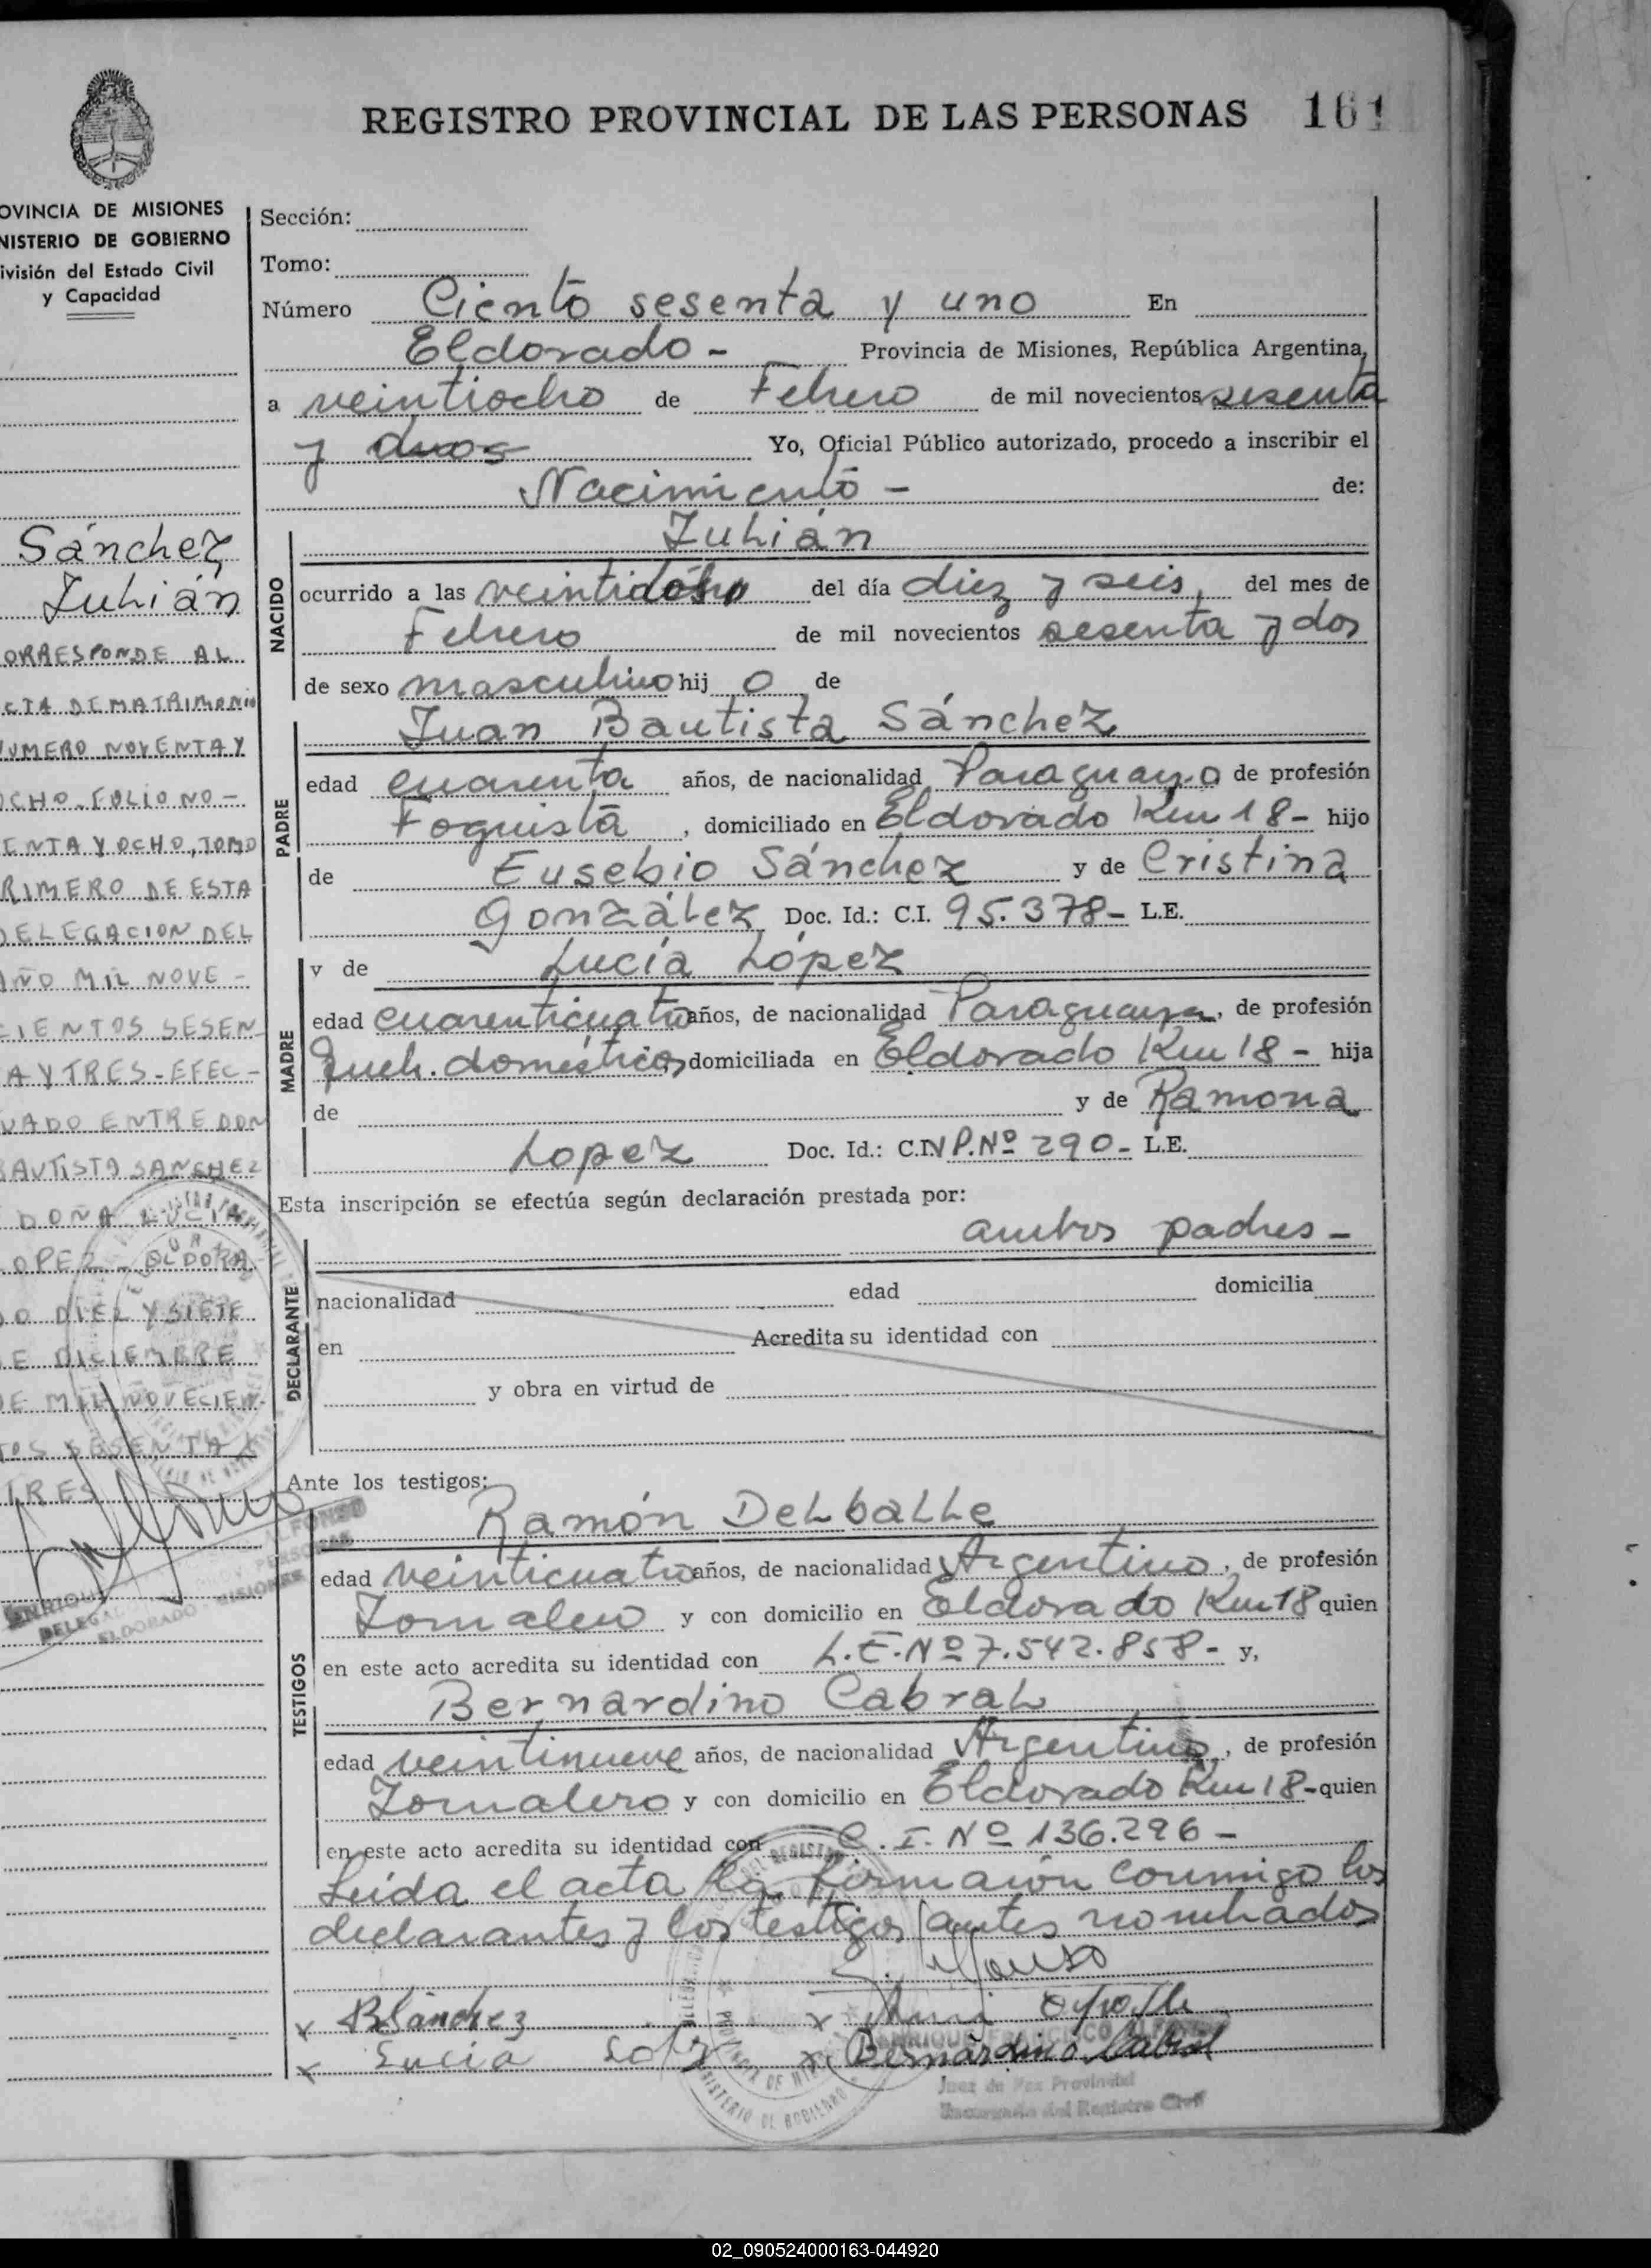 REGISTRO PROVINCIAL DE LAS PERSONAS 161
OVINCIA DE MISIONES
NISTERIO DE GOBIERNO
ivisión del Estado Civil
y Capacidad
Sánchez
Julián
ORRESPONDE AL
CTA DE MATRIMONIO
NUMERO NOVENTA Y
OCHO. FOLIO NO-
ENTA Y OCHO, TOMO
RIMERO DE ESTA
DELEGACION DEL
AÑO MIL NOVE-
CIENTOS SESEN
A Y TRES-EFEC-
UADO ENTRE DON
BAUTISTA SANCHEZ
DOÑA LUCIA
LOPEZ - ELDORA
DO DIEZ Y SIETE
E DICIEMBRE
DE MIL NOVECIEN-
TOS SESENTA Y
TRES
ELDORADO - MISIONES
Sección:
Tomo:
Número Ciento sesenta y uno En
Eldorado - Provincia de Misiones, República Argentina,
a veintiocho de Febrero de mil novecientos sesenta
y dos Yo, Oficial Público autorizado, procedo a inscribir el
Nacimiento - de:
NACIDO
Julián
ocurrido a las del día diez y seis, del mes de
Febrero de mil novecientos sesenta y dos
de sexo masculino hij o de
PADRE
Juan Bautista Sánchez
edad cuarenta años, de nacionalidad Paraguaya de profesión
Foguista, domiciliado en Eldorado Km 18- hijo
de Eusebio Sánchez y de Cristina
González Doc. Id.: C.I. 95.378- L.E.
MADRE
y de Lucía López
edad cuarenticuatro años, de nacionalidad Paraguaya, de profesión
Queh. domésticos, domiciliada en Eldorado Km 18- hija
de y de Ramona
Lopez Doc. Id.: C.I. P.Nº 290- L.E.
Esta inscripción se efectúa según declaración prestada por:
DECLARANTE
ambos padres -
nacionalidad edad domicilia
en Acredita su identidad con
y obra en virtud de
Ante los testigos:
TESTIGOS
Ramón Delballe
edad veinticuatro años, de nacionalidad Argentino, de profesión
Jornalero y con domicilio en Eldorado Km 18 quien
en este acto acredita su identidad con L.E. Nº 7.542.858- y,
Bernardino Cabral
edad veintinueve años, de nacionalidad Argentino, de profesión
Jornalero y con domicilio en Eldorado Km 18- quien
en este acto acredita su identidad con C. I. Nº 136.296-
Leida el acta la firmaron conmigo los
declarantes y los testigos antes nombrados
x BSánchez
x Lucia
x Bernardino Cabral
ENRIQUE FRANCISCO ALFONSO
Juez de Paz Provincial
Encargado del Registro Civil
02_090524000163-044920